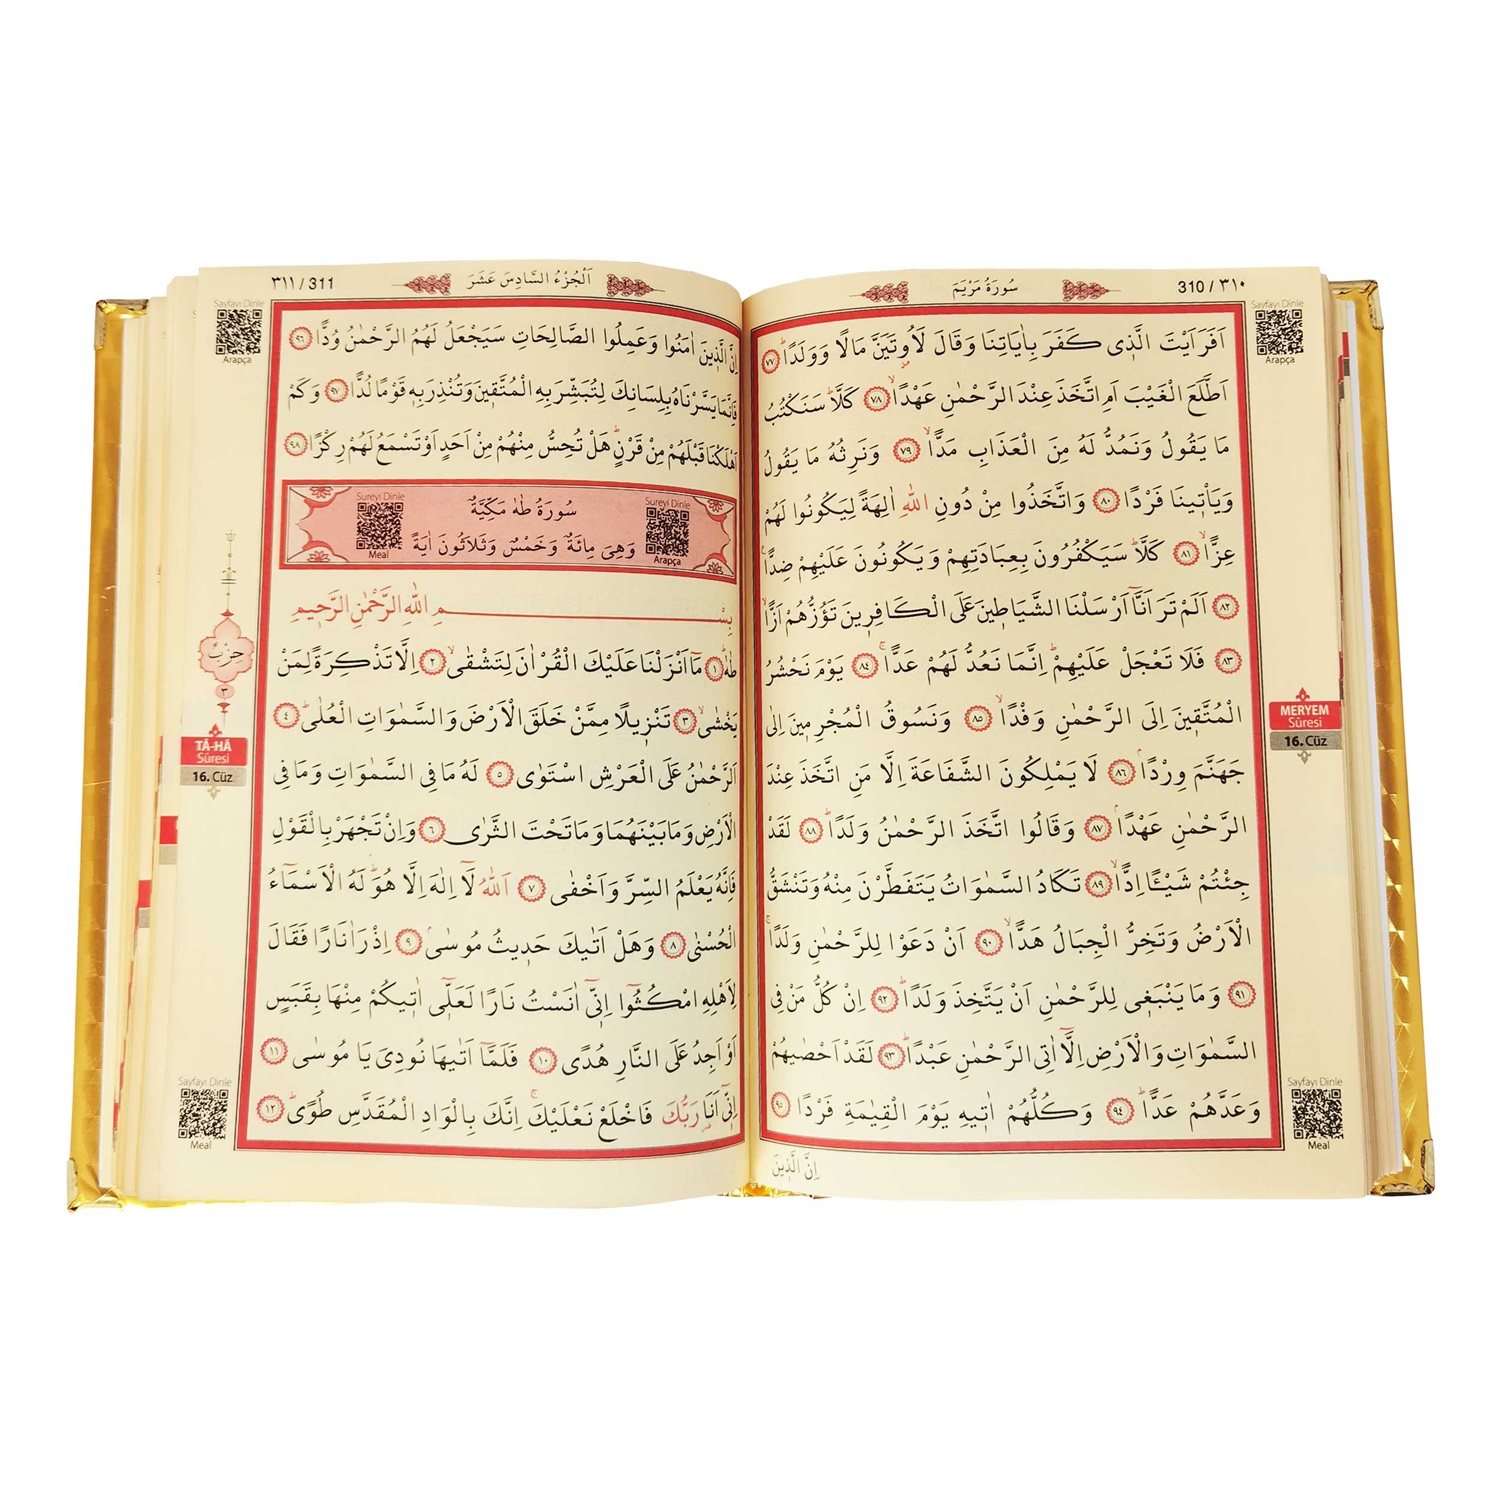 310 / ٣١٠
سُورَةُ مَرْيَمَ
Sayfayı Dinle
Arapça
اَفَرَاَيْتَ الَّذٖى كَفَرَ بِاٰيَاتِنَا وَقَالَ لَاُوتَيَنَّ مَالًا وَوَلَدًاؕ ﴿٧٧﴾
اَطَّلَعَ الْغَيْبَ اَمِ اتَّخَذَ عِنْدَ الرَّحْمٰنِ عَهْدًاۙ ﴿٧٨﴾ كَلَّاؕ سَنَكْتُبُ
مَا يَقُولُ وَنَمُدُّ لَهُ مِنَ الْعَذَابِ مَدًّاۙ ﴿٧٩﴾ وَنَرِثُهُ مَا يَقُولُ
وَيَاْتٖينَا فَرْدًا ﴿٨٠﴾ وَاتَّخَذُوا مِنْ دُونِ اللّٰهِ اٰلِهَةً لِيَكُونُوا لَهُمْ
عِزًّاۙ ﴿٨١﴾ كَلَّاؕ سَيَكْفُرُونَ بِعِبَادَتِهِمْ وَيَكُونُونَ عَلَيْهِمْ ضِدًّاۚ
﴿٨٢﴾ اَلَمْ تَرَ اَنَّٓا اَرْسَلْنَا الشَّيَاطٖينَ عَلَى الْكَافِرٖينَ تَؤُزُّهُمْ اَزًّاۙ
﴿٨٣﴾ فَلَا تَعْجَلْ عَلَيْهِمْؕ اِنَّمَا نَعُدُّ لَهُمْ عَدًّاۚ ﴿٨٤﴾ يَوْمَ نَحْشُرُ
الْمُتَّقٖينَ اِلَى الرَّحْمٰنِ وَفْدًاۙ ﴿٨٥﴾ وَنَسُوقُ الْمُجْرِمٖينَ اِلٰى
جَهَنَّمَ وِرْدًاۘ ﴿٨٦﴾ لَا يَمْلِكُونَ الشَّفَاعَةَ اِلَّا مَنِ اتَّخَذَ عِنْدَ
الرَّحْمٰنِ عَهْدًاۘ ﴿٨٧﴾ وَقَالُوا اتَّخَذَ الرَّحْمٰنُ وَلَدًاؕ ﴿٨٨﴾ لَقَدْ
جِئْتُمْ شَيْـًٔا اِدًّاۙ ﴿٨٩﴾ تَكَادُ السَّمٰوَاتُ يَتَفَطَّرْنَ مِنْهُ وَتَنْشَقُّ
الْاَرْضُ وَتَخِرُّ الْجِبَالُ هَدًّاۙ ﴿٩٠﴾ اَنْ دَعَوْا لِلرَّحْمٰنِ وَلَدًاۚ
﴿٩١﴾ وَمَا يَنْبَغٖى لِلرَّحْمٰنِ اَنْ يَتَّخِذَ وَلَدًاؕ ﴿٩٢﴾ اِنْ كُلُّ مَنْ فِى
السَّمٰوَاتِ وَالْاَرْضِ اِلَّٓا اٰتِى الرَّحْمٰنِ عَبْدًاؕ ﴿٩٣﴾ لَقَدْ اَحْصٰيهُمْ
وَعَدَّهُمْ عَدًّاؕ ﴿٩٤﴾ وَكُلُّهُمْ اٰتٖيهِ يَوْمَ الْقِيٰمَةِ فَرْدًا ﴿٩٥﴾
اِنَّ الَّذٖينَ
MERYEM
Sûresi
16. Cüz
Sayfayı Dinle
Meal
اَلْجُزْءُ السَّادِسَ عَشَرَ
٣١١ / 311
Sayfayı Dinle
Arapça
اِنَّ الَّذٖينَ اٰمَنُوا وَعَمِلُوا الصَّالِحَاتِ سَيَجْعَلُ لَهُمُ الرَّحْمٰنُ وُدًّا ﴿٩٦﴾
فَاِنَّمَا يَسَّرْنَاهُ بِلِسَانِكَ لِتُبَشِّرَ بِهِ الْمُتَّقٖينَ وَتُنْذِرَ بِهٖ قَوْمًا لُدًّا ﴿٩٧﴾ وَكَمْ
اَهْلَكْنَا قَبْلَهُمْ مِنْ قَرْنٍؕ هَلْ تُحِسُّ مِنْهُمْ مِنْ اَحَدٍ اَوْ تَسْمَعُ لَهُمْ رِكْزًا ﴿٩٨﴾
Sureyi Dinle
Arapça
سُورَةُ طٰهٰ مَكِّيَّةٌ
وَهِىَ مِائَةٌ وَخَمْسٌ وَثَلَاثُونَ اٰيَةً
Sureyi Dinle
Meal
بِسْمِ اللّٰهِ الرَّحْمٰنِ الرَّحٖيمِ
طٰهٰ ﴿١﴾ مَٓا اَنْزَلْنَا عَلَيْكَ الْقُرْاٰنَ لِتَشْقٰىۙ ﴿٢﴾ اِلَّا تَذْكِرَةً لِمَنْ
يَخْشٰىۙ ﴿٣﴾ تَنْزٖيلًا مِمَّنْ خَلَقَ الْاَرْضَ وَالسَّمٰوَاتِ الْعُلٰىؕ ﴿٤﴾
اَلرَّحْمٰنُ عَلَى الْعَرْشِ اسْتَوٰى ﴿٥﴾ لَهُ مَا فِى السَّمٰوَاتِ وَمَا فِى
الْاَرْضِ وَمَا بَيْنَهُمَا وَمَا تَحْتَ الثَّرٰى ﴿٦﴾ وَاِنْ تَجْهَرْ بِالْقَوْلِ
فَاِنَّهُ يَعْلَمُ السِّرَّ وَاَخْفٰى ﴿٧﴾ اَللّٰهُ لَٓا اِلٰهَ اِلَّا هُوَؕ لَهُ الْاَسْمَٓاءُ
الْحُسْنٰى ﴿٨﴾ وَهَلْ اَتٰيكَ حَدٖيثُ مُوسٰىۘ ﴿٩﴾ اِذْ رَاٰ نَارًا فَقَالَ
لِاَهْلِهِ امْكُثُٓوا اِنّٖٓى اٰنَسْتُ نَارًا لَعَلّٖٓى اٰتٖيكُمْ مِنْهَا بِقَبَسٍ
اَوْ اَجِدُ عَلَى النَّارِ هُدًى ﴿١٠﴾ فَلَمَّٓا اَتٰيهَا نُودِىَ يَا مُوسٰى ﴿١١﴾
اِنّٖٓى اَنَا۬ رَبُّكَ فَاخْلَعْ نَعْلَيْكَۚ اِنَّكَ بِالْوَادِ الْمُقَدَّسِ طُوًىؕ ﴿١٢﴾
حِزْبْ
٣
TÂ-HÂ
Sûresi
16. Cüz
Sayfayı Dinle
Meal